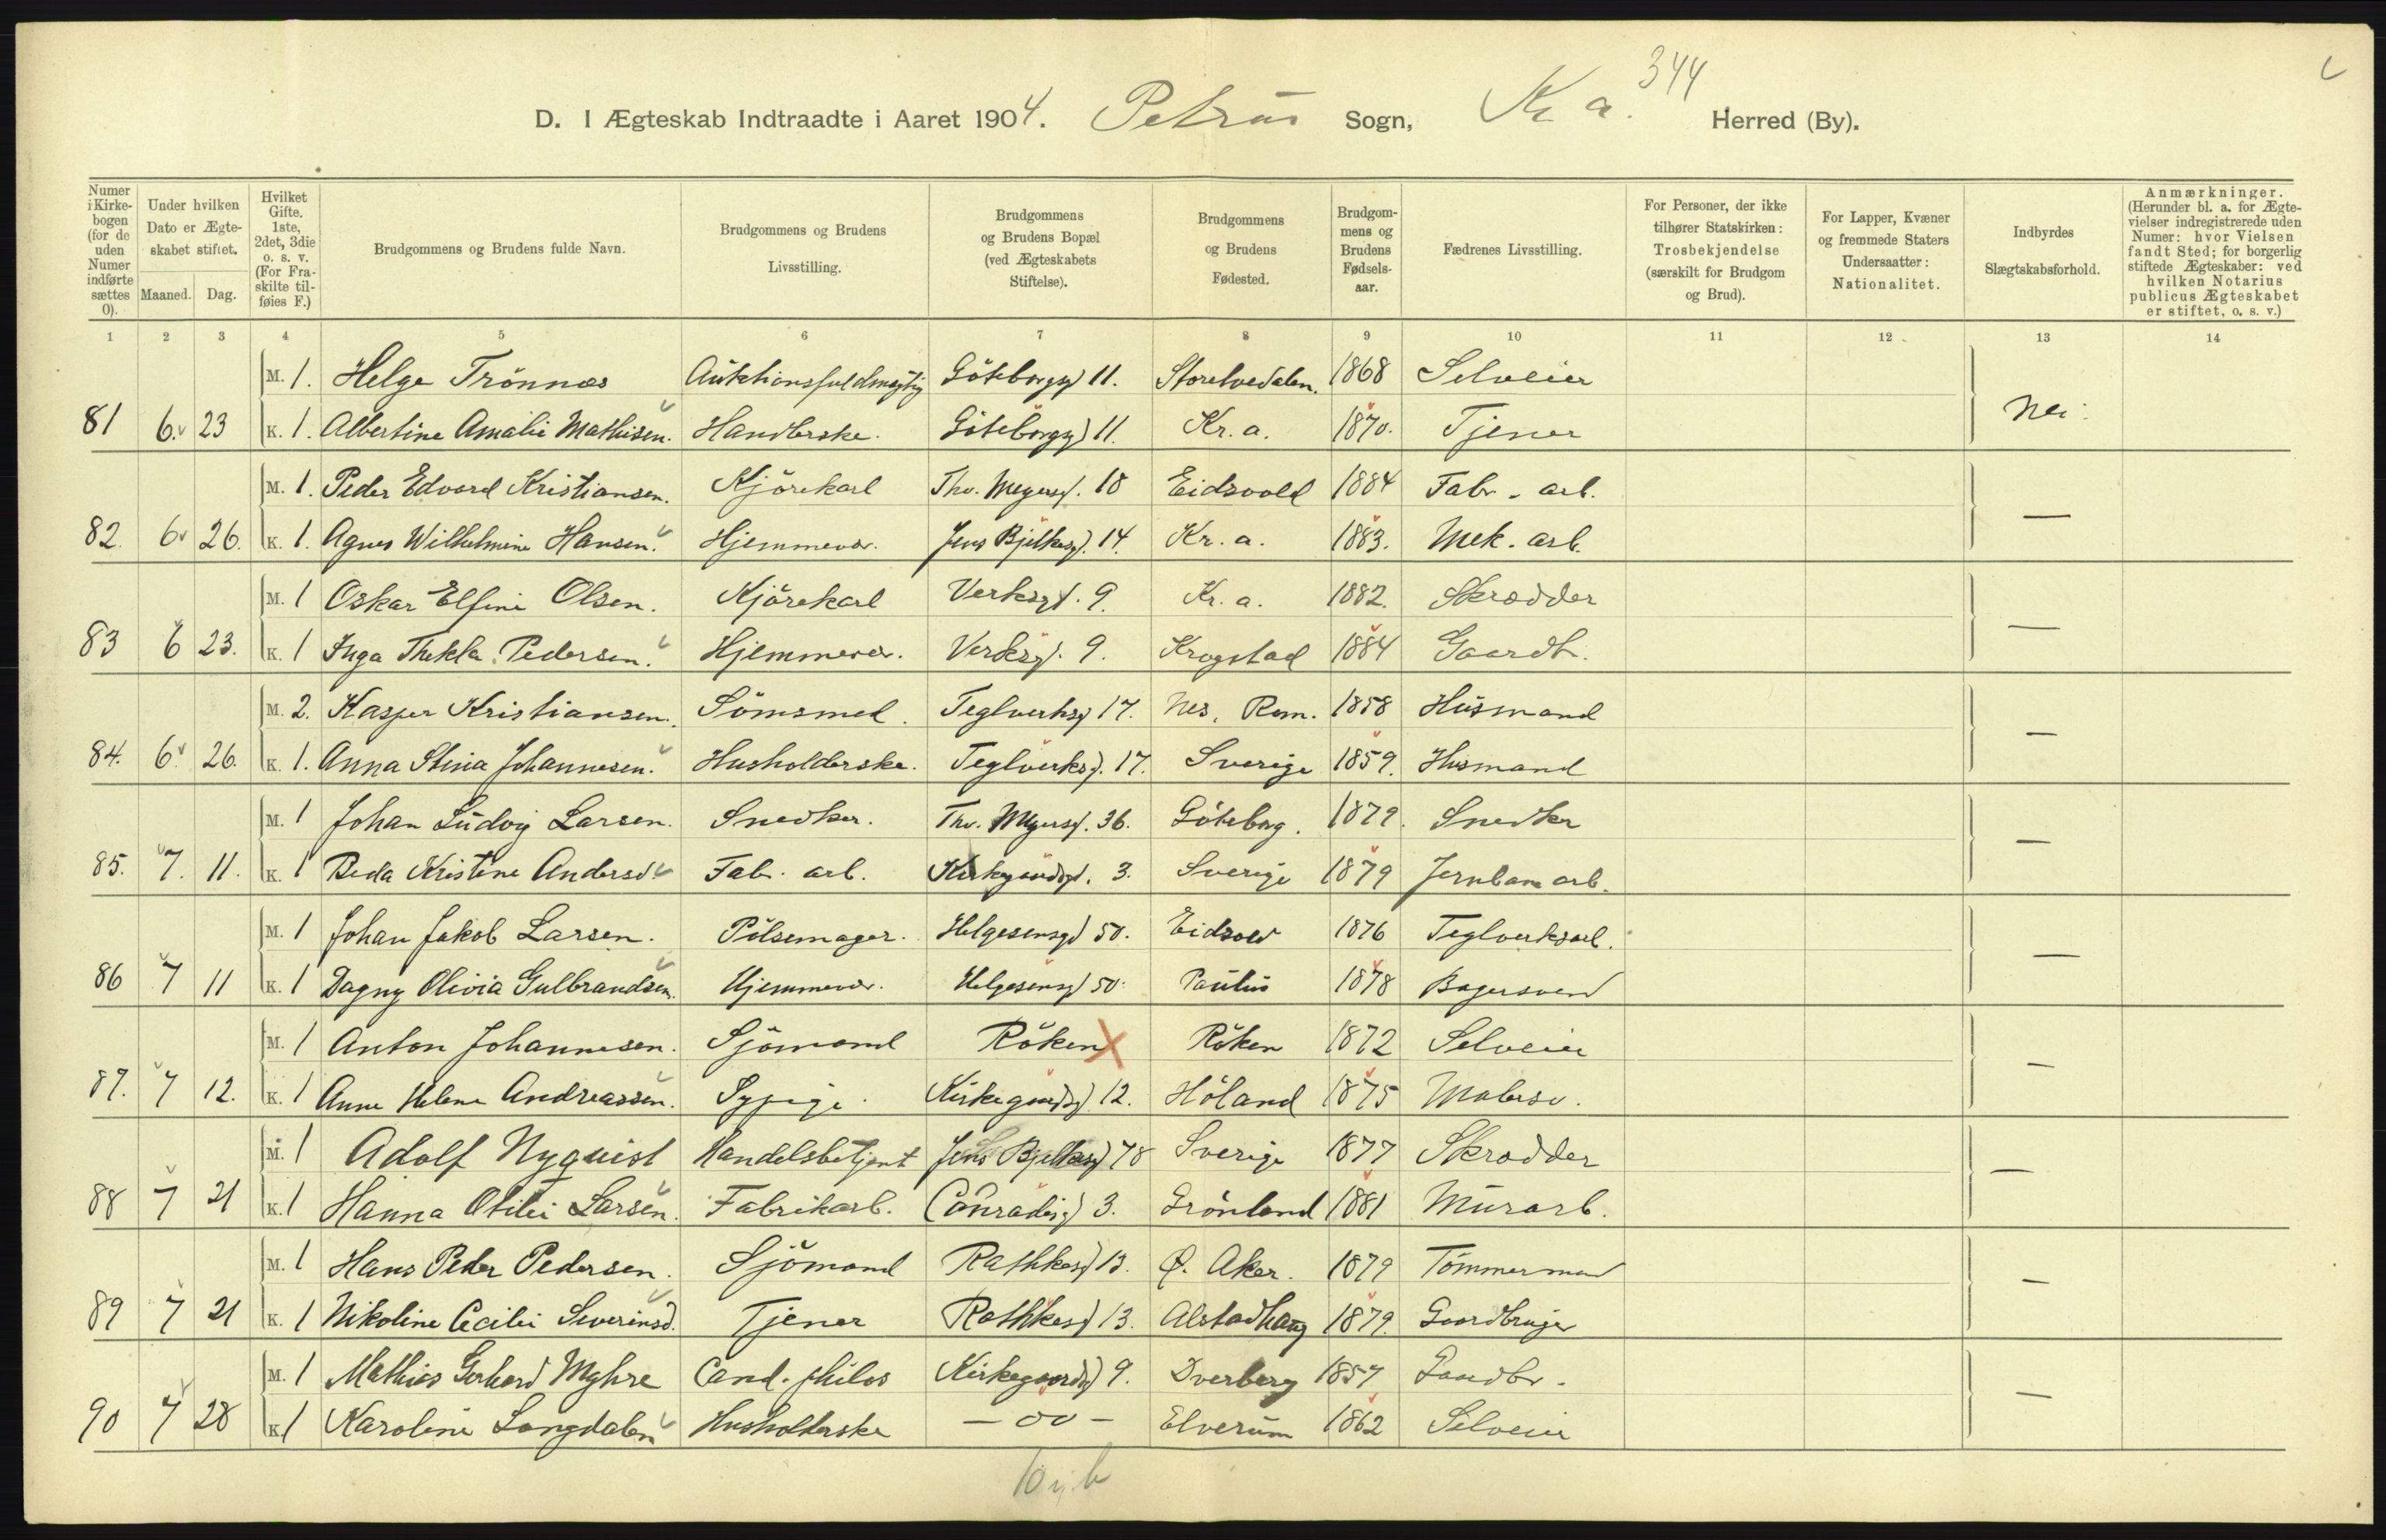 344
D. I Ægteskab Indtraadte i Aaret 1904. Petrus Sogn, Kr. a. Herred (By).
Numer i Kirkebogen (for de uden Numer indførte sættes 0). Under hvilken Dato er Ægteskabet stiftet. Maaned. Dag. Hvilket Gifte. 1ste, 2det, 3die o. s. v. (For Fraskilte tilføies F.) Brudgommens og Brudens fulde Navn. Brudgommens og Brudens Livsstilling. Brudgommens og Brudens Bopæl (ved Ægteskabets Stiftelse). Brudgommens og Brudens Fødested. Brudgommens og Brudens Fødselsaar. Fædrenes Livsstilling. For Personer, der ikke tilhører Statskirken: Trosbekjendelse (særskilt for Brudgom og Brud). For Lapper, Kvæner og fremmede Staters Undersaatter: Nationalitet. Indbyrdes Slægtskabsforhold. Anmærkninger. (Herunder bl. a. for Ægtevielser indregistrerede uden Numer: hvor Vielsen fandt Sted; for borgerlig stiftede Ægteskaber: ved hvilken Notarius publicus Ægteskabet er stiftet, o. s. v.)
1 2 3 4 5 6 7 8 9 10 11 12 13 14
M. 1. Helge Trönnæs Auktionsfuldmægtig Göteborggd 11. Storelvedalen. 1868 Selveier
81 6. 23 K. 1. Albertine Amalie Mathisen. Handlerske. Göteborggd 11. Kr. a. 1870. Tjener Nei
M. 1. Peder Edvard Kristiansen. Kjörekarl Thv. Meyersgd. 18 Eidsvold 1884 Fabr. arb.
82. 6 26. K. 1. Agnes Wilhelmine Hansen. Hjemmevær. Jens Bjelkesgd. 14. Kr. a. 1883. Mek. arb. —
M. 1 Oskar Elfini Olsen. Kjörekarl Verksgd. 9. Kr. a. 1882. Skrædder
83 6 23. K. 1 Inga Thekla Pedersen. Hjemmevær. Verksgd. 9. Krogstad 1884 Gaardb. —
M. 2. Kasper Kristiansen. Sömsmed. Teglverksgd 17. Nes, Rom. 1858 Husmand
84. 6. 26. K. 1. Anna Stina Johannesen. Husholderske. Teglverksgd. 17. Sverige 1859. Husmand —
M. 1 Johan Ludvig Larsen. Snedker. Thv. Meyersgd. 36. Göteborg. 1879. Snedker
85. 7. 11. K. 1 Beda Kristine Andersd. Fab. arb. Kirkegaardsgd. 3. Sverige 1879 Jernbanearb. —
M. 1 Johan Jakob Larsen. Pölsemager. Helgesensgd 50. Eidsvold 1876 Teglverksarb.
86 7 11 K. 1 Dagny Olivia Gulbrandsen. Hjemmevær. Helgesensgd 50. Paulus 1878 Bagersvend —
M. 1 Anton Johannesen. Sjömand Röken X Röken 1872 Selveier
87. 7 12. K. 1 Anne Helene Andreassen. Sypige. Kirkegaardsgd 12. Höland 1875 Malersv. —
M. 1 Adolf Nyquist Handelsbetjent Jens Bjelkesgd 78 Sverige 1877 Skrædder
88 7 21 K. 1 Hanna Otilie Larsen. Fabrikarb. Conradisgd 3. Grönland 1881 Murarb. —
M. 1 Hans Peder Pedersen. Sjömand Rathkesgd 13. Ö. Aker. 1879 Tömmermand
89 7 21 K. 1 Nikoline Cecilie Severinsd. Tjener Rathkesgd 13. Alstadhaug 1879. Gaardbruger —
M. 1 Mathias Gerhard Myhre Cand. philos Kirkegaardsgd 9. Dverberg 1857 Gaardbr.
90 7 28 K. 1 Karoline Langdalen Husholderske — oo — Elverum 1862 Selveier —